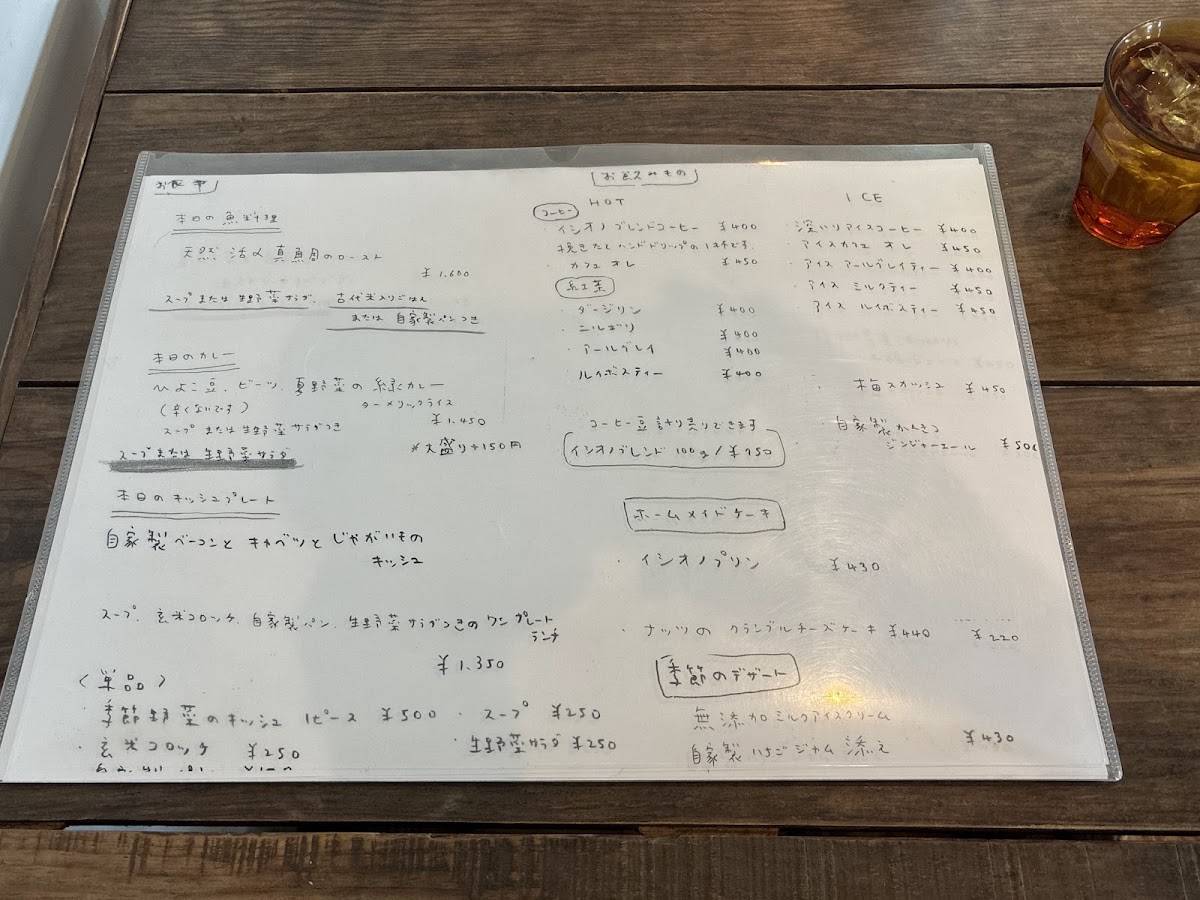 お食事
本日の魚料理
天然 活〆 真鯛のロースト
¥1.600
スープまたは生野菜サラダ、古代米入りごはん
または 自家製パンつき
本日のカレー
ひよこ豆、ビーツ、夏野菜の緑カレー
(辛くないです) ターメリックライス
スープまたは生野菜サラダつき ¥1.450
*大盛り+150円
スープまたは 生野菜サラダ
本日のキッシュプレート
自家製ベーコンと キャベツと じゃがいもの
キッシュ
スープ、玄米コロッケ、自家製パン、生野菜サラダつきのワンプレート
ランチ
¥1.350
(単品)
・季節野菜のキッシュ 1ピース ¥500 ・スープ ¥250
・玄米コロッケ ¥250 ・生野菜サラダ ¥250
お飲みもの
HOT
コーヒー
・イシオノブレンドコーヒー ¥400
挽きたてハンドドリップの1杯です。
・カフェオレ ¥450
紅茶
・ダージリン ¥400
・ニルギリ ¥400
・アールグレイ ¥400
・ルイボスティー ¥400
コーヒー豆 計り売りできます
イシオノブレンド 100g/¥750
ICE
・深いりアイスコーヒー ¥400
・アイスカフェ オレ ¥450
・アイス アールグレイティー ¥400
・アイス ミルクティー ¥450
アイス ルイボスティー ¥450
・梅スカッシュ ¥450
・自家製かんきつ
ジンジャーエール ¥500
ホームメイドケーキ
・イシオノプリン ¥430
・ナッツの クランブルチーズケーキ ¥440 ¥220
季節のデザート
無添加ミルクアイスクリーム
自家製いちごジャム添え ¥430